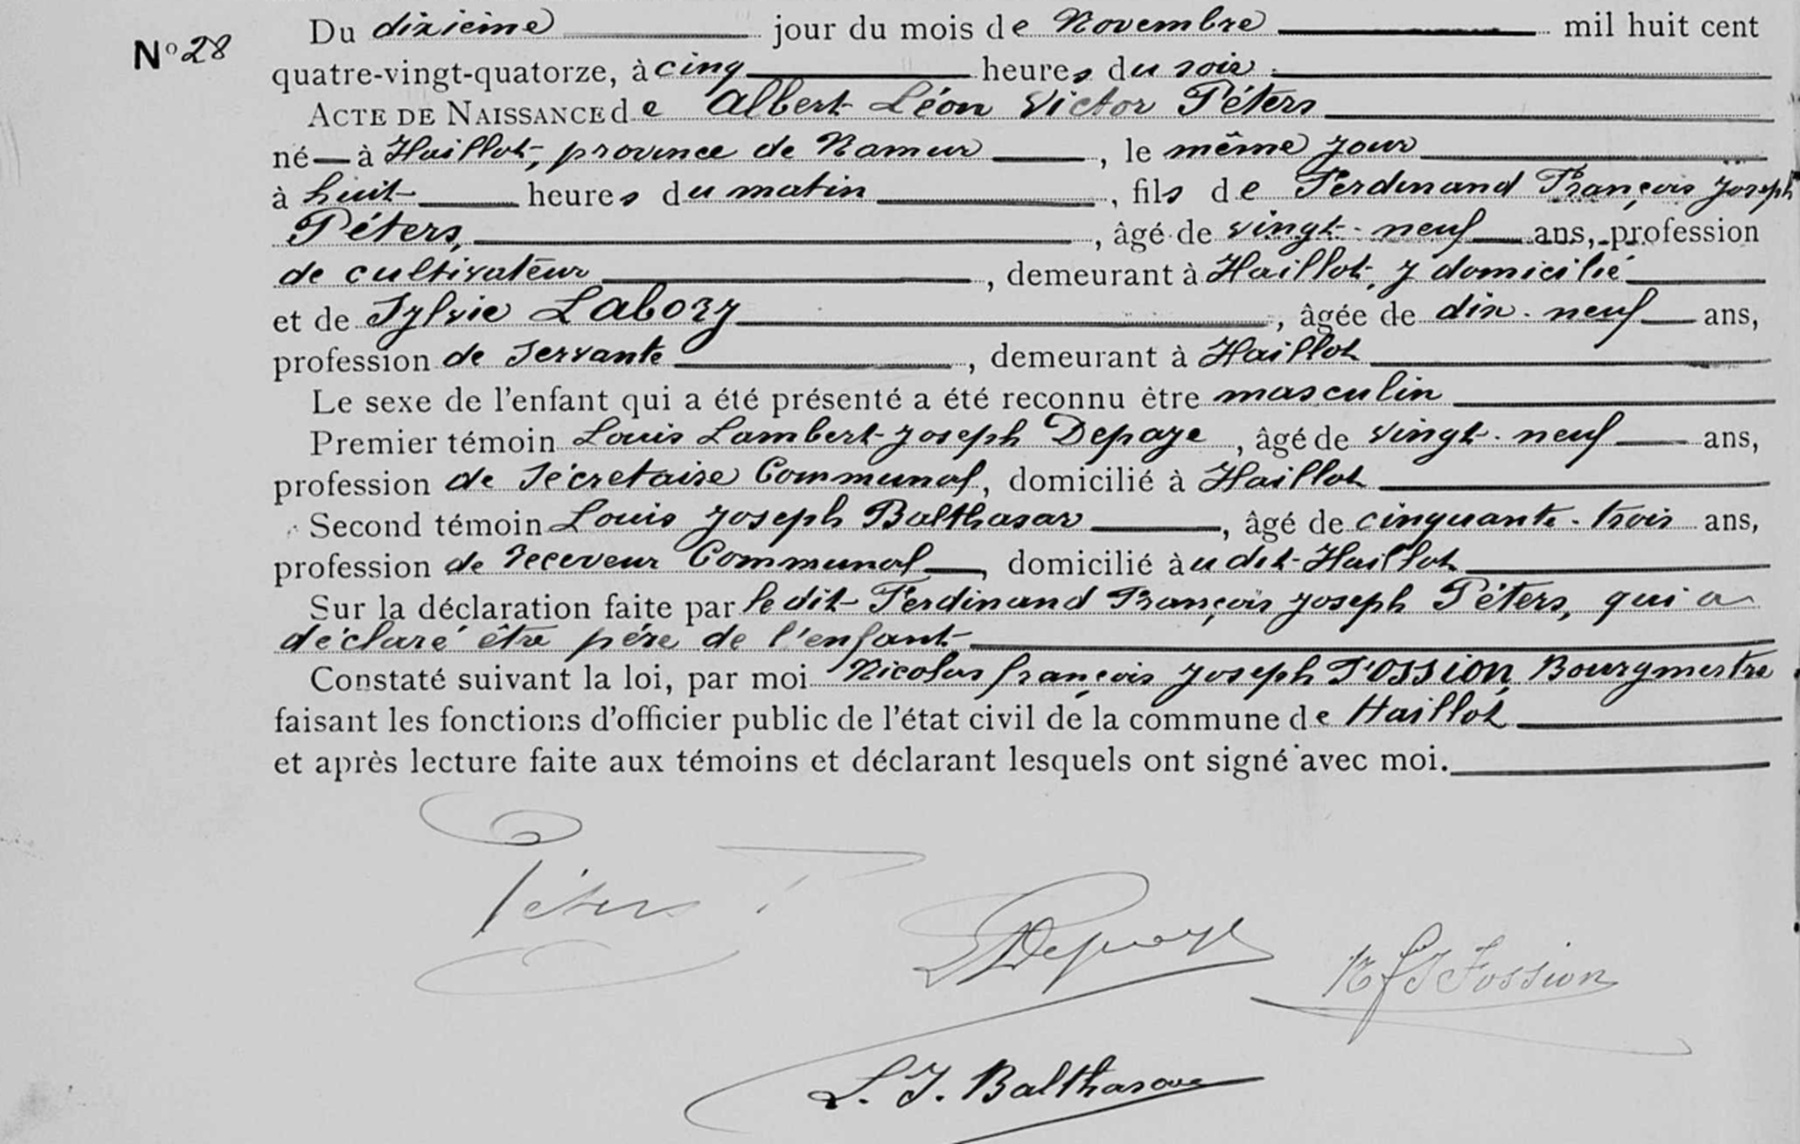 N° 28
Du dixième jour du mois de Novembre mil huit cent
quatre-vingt-quatorze, à cinq heures du soir.
ACTE DE NAISSANCE de Albert Léon Victor Péters
né à Haillot, province de Namur, le même jour
à huit heures du matin, fils de Ferdinand François Joseph
Péters, âgé de vingt-neuf ans, profession
de cultivateur, demeurant à Haillot y domicilié
et de Sylvie Labory, âgée de dix-neuf ans,
profession de servante, demeurant à Haillot
Le sexe de l'enfant qui a été présenté a été reconnu être masculin
Premier témoin Louis Lambert Joseph Depaye, âgé de vingt-neuf ans,
profession de Sécretaire Communal, domicilié à Haillot
Second témoin Louis Joseph Balthasar, âgé de cinquante-trois ans,
profession de receveur Communal, domicilié àudit Haillot
Sur la déclaration faite par ledit Ferdinand François Joseph Péters, qui a
déclaré être père de l'enfant
Constaté suivant la loi, par moi Nicolas françois Joseph FOSSION, Bourgmestre
faisant les fonctions d'officier public de l'état civil de la commune de Haillot
et après lecture faite aux témoins et déclarant lesquels ont signé avec moi.
Péters F
LDepaye
N f J Fossion
L. J. Balthasar